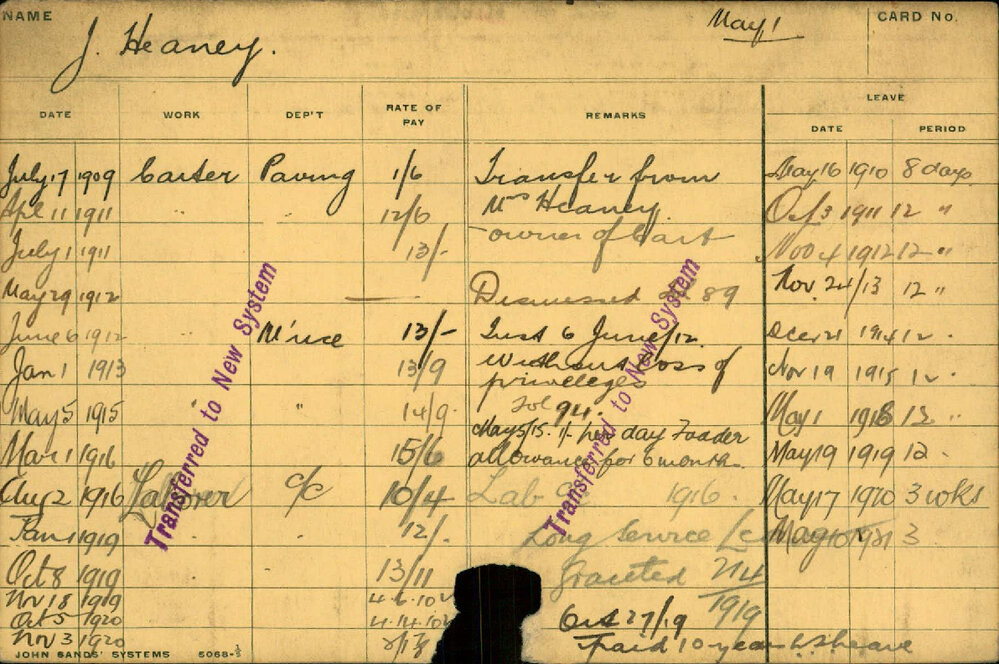 NAME J. Heaney. May 1 CARD No.
DATE WORK DEP'T RATE OF PAY REMARKS LEAVE
DATE PERIOD
July 17 1909 Carter Paving 1/6 Transfer from May 16 1910 8 days
Apl 11 1911 " 12/6 Mrs Heaney Oct 3 1911 12 "
July 1 1911 13/- owner of Cart Nov 4 1912 12 "
May 29 1912 — Dismissed 89 Nov 24/13 12 "
June 6 1912 M'nce 13/- Inst 6 June/12 Decr 21 1914 12 "
Jan 1 1913 13/9 without loss of privileges Nov 19 1915 12 "
May 5 1915 " " 14/9 fol 94. May 1 1918 12 "
May 5/15. 1/- per day Fodder
Mar 1 1916 15/6 allowance for 6 months May 19 1919 12 "
Aug 2 1916 Laborer c/c 10/4 Lab 1916. May 17 1920 3 wks
Jan 1 1919 " " 12/- Long Service 1921 3
Oct 8 1919 " 13/11 Granted 214
Nov 18 1919 4.6.10 1919
Oct 5 1920 4.14.10 Oct 27/19
Nov 3 1920 Paid 10 years
JOHN SANDS' SYSTEMS 5068-
Transferred to New System
Transferred to New System